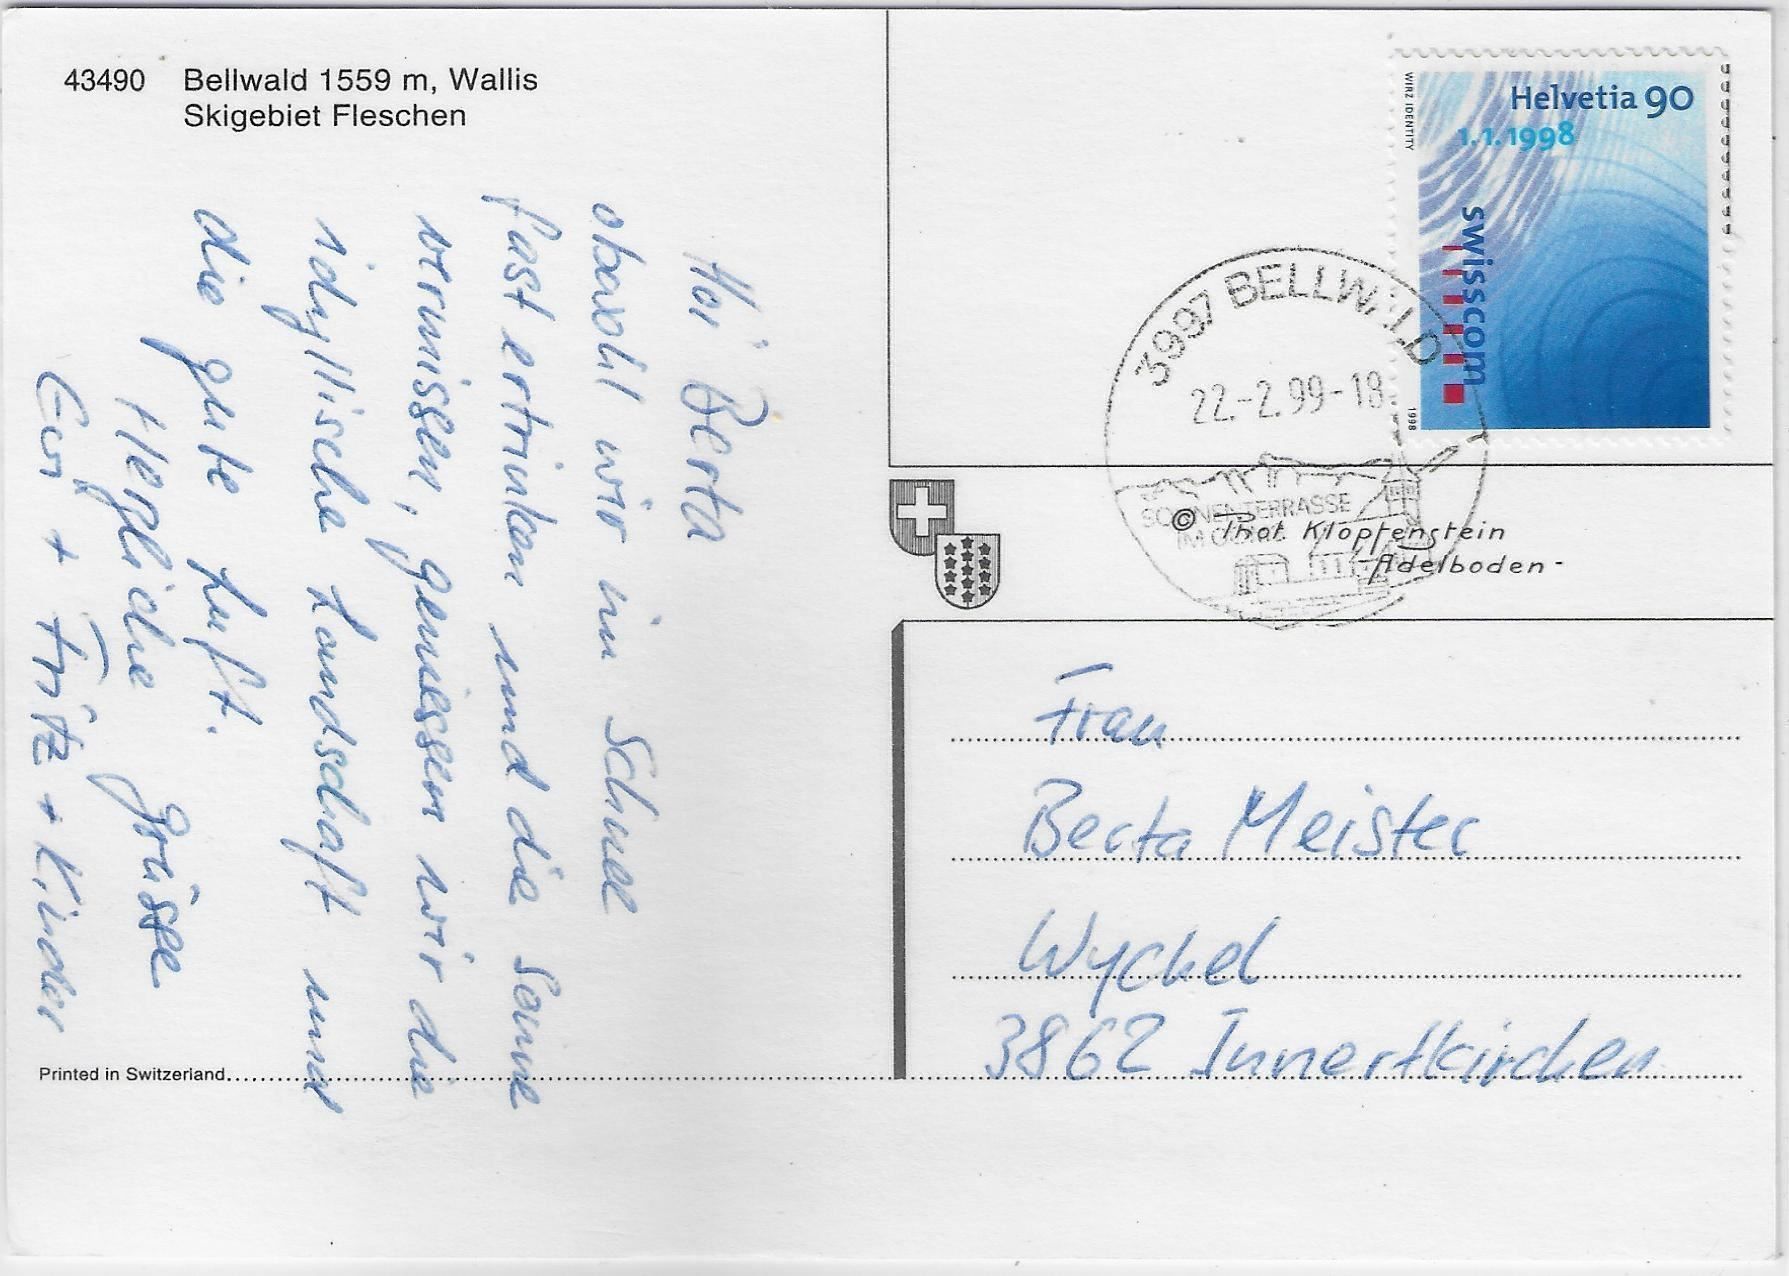 43490 Bellwald 1559 m, Wallis
Skigebiet Fleschen
Hoi Berta
obwohl wir im Schnee
fast ertrinken und die Sonne
vermissen, geniessen wir die
idyllische Landschaft und
die gute Luft.
Herzliche Grüsse
Evi + Fritz + Kinder
Printed in Switzerland
Helvetia 90
1.1.1998
swisscom
WIRZ IDENTITY
1998
3997 BELLWALD
22.-2.99-18
SONNENTERRASSE
IM
© Phot. Klopfenstein
Adelboden-
Frau
Berta Meister
Wychel
3862 Innertkirchen